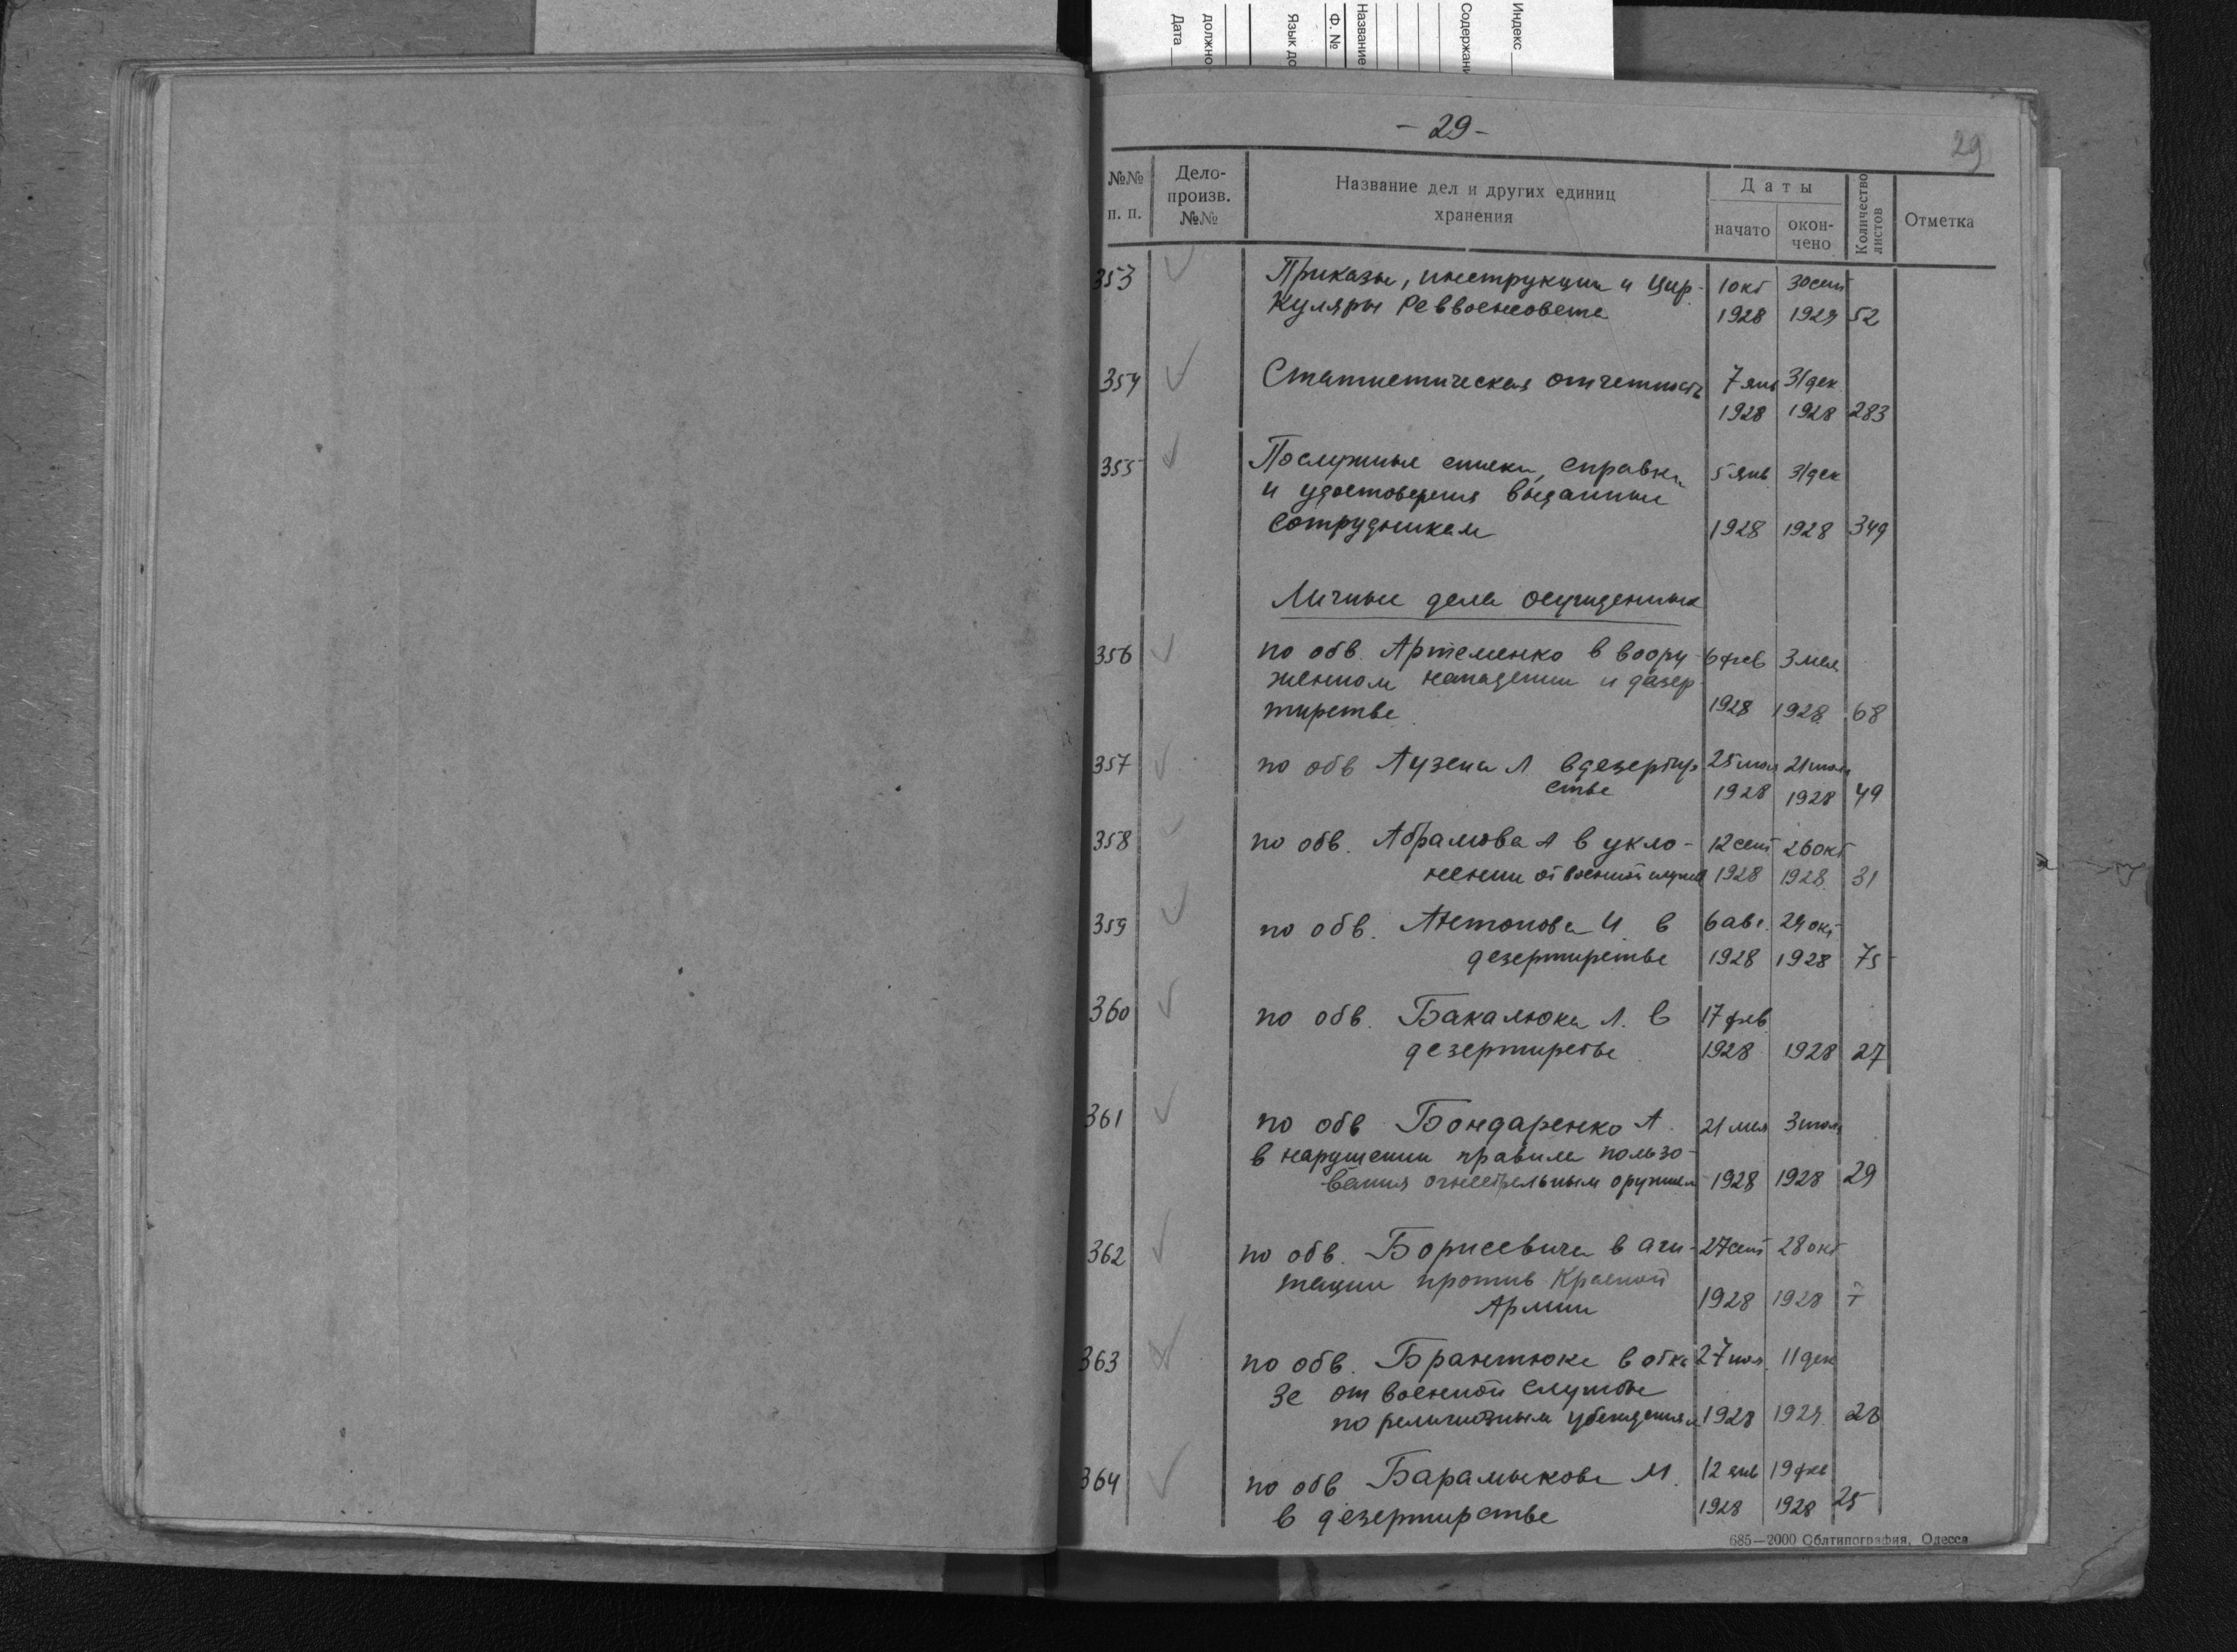 Индекс
Содержани
Название
Ф. №
Язык до
должно
Дата
- 29 -
29
№№ п. п.
Дело-произв. №№
Название дел и других единиц хранения
Даты
начато
окон-чено
Количество листов
Отметка
353 Приказы, инструкции и Цир- 1 окт 30 сент
куляры Реввоенсовета 1928 1929 52
354 Статистическая отчетность 7 янв 31 дек
1928 1928 283
355 Послужные списки, справки 5 янв 31 дек
и удостоверения выданные
сотрудникам 1928 1928 349
Личные дела осужденных
356 по обв. Артеменко в воору- 6 фев 3 мая
женном нападении и дезер-
тирстве 1928 1928 68
357 по обв Аузена Л в дезертир 25 21
стве 1928 1928 49
358 по обв. Абрамова А в укло- 12 сент 26 окт
нении от военной службы 1928 1928 31
359 по обв. Антонова И в 6 авг. 29 окт
дезертирстве 1928 1928 75
360 по обв. Бакалюка Л. в 17 фев
дезертирстве 1928 1928 27
361 по обв Бондаренко А. 21 мая 3 июля
в нарушении правила пользо-
вания огнестрельным оружием 1928 1928 29
362 по обв. Борисевича в аги- 27 сент 28 окт
тации против Красной
Армии 1928 1928
363 по обв. Брантюка в отка 27 11 дек
зе от военной службы
по религиозным убеждениям 1928 1929 28
364 по обв Барамыкова М. 12 янв 19 фев
в дезертирстве 1928 1928 25
685—2000 Облтипография, Одесса